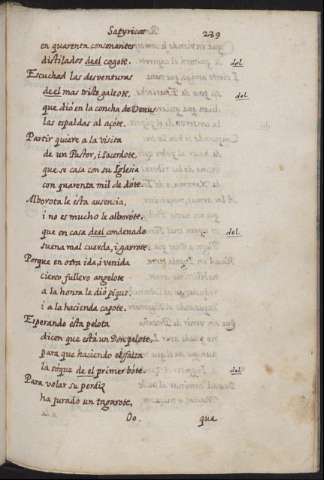 Satyricos 239
en quarenta consonantes
distilados deel cogote. del
Escuchad las desventuras
deel mas triste galeote, del
que dió en la concha de Venus
las espaldas al açote.
Partir quiere a la visita
de un Pastor, i Sacerdote,
que se casa con su Iglesia
con quarenta mil de dote.
Alborota le ésta ausencia,
i no es mucho le alborote,
que en casa deel condenado del.
suena mal cuerda, i garrote.
Porque en otra ida, i venida
cierto fullero angelote
a la honra le dió pique,
i a la hacienda capote.
Esperando ésta pelota
dicen que está un Don pelote,
para que haciendo el falta
la toque de el primer bote. del
Para volar su perdiz
ha jurado un tagarote,
Oo. que